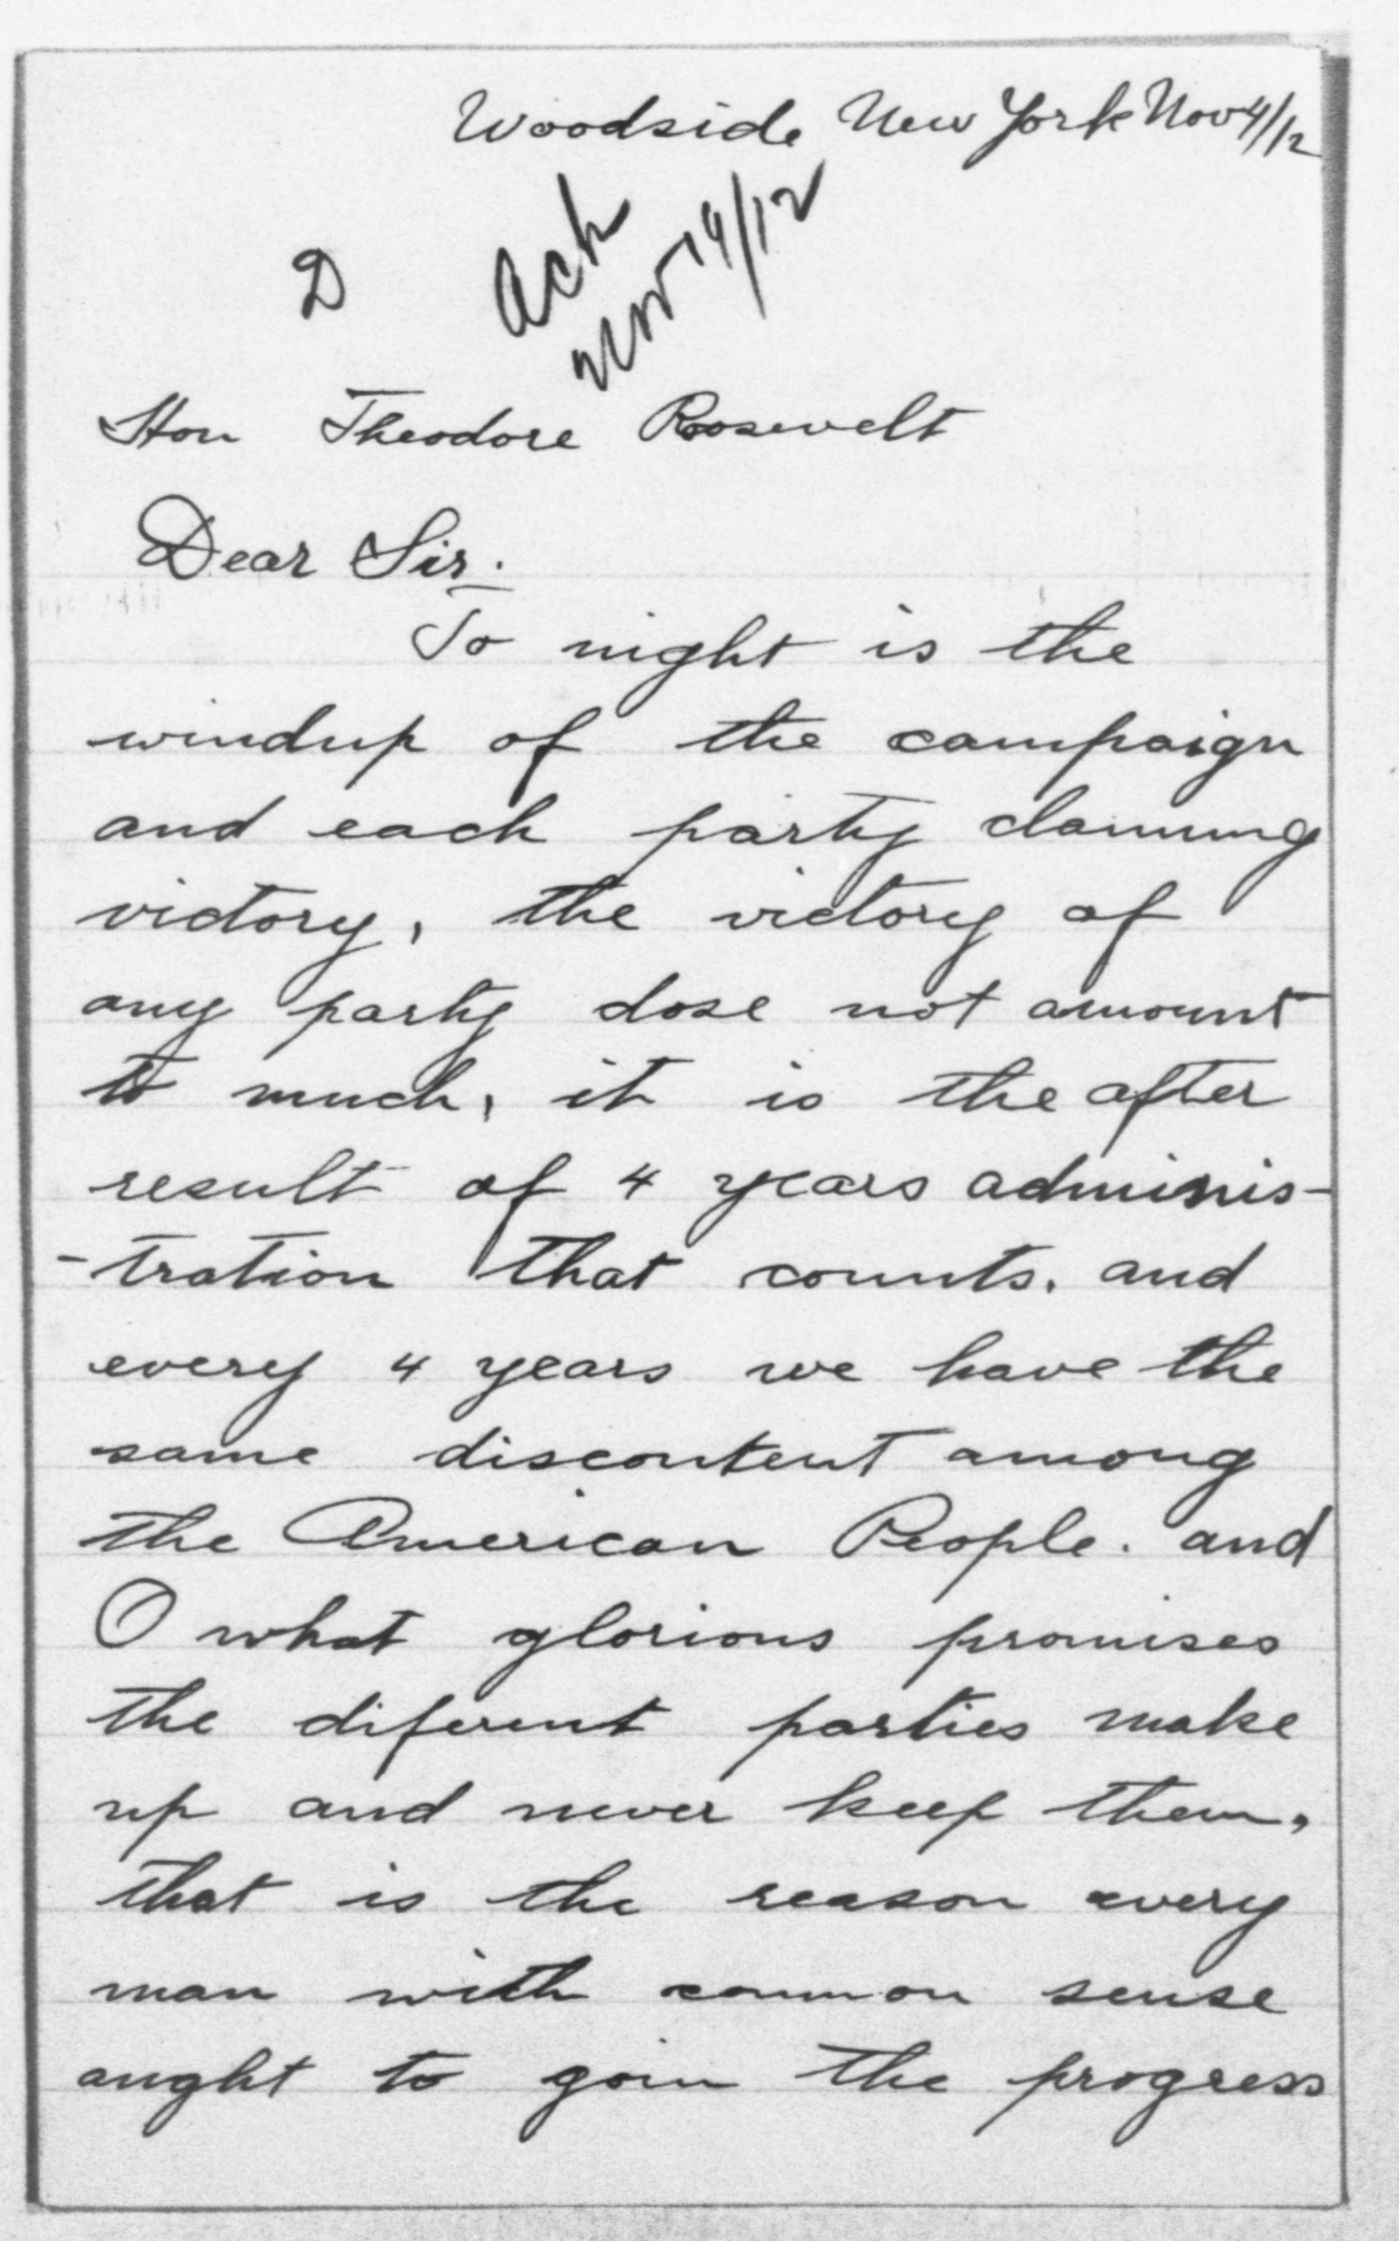 Woodside New York Nov 4/12
D
Ack
Nov 19/12
Hon Theodore Roosevelt
Dear Sir.
To night is the
windup of the campaign
and each party claming
victory, the victory of
any party dose not amount
to much, it is the after
result of 4 years adminis-
-tration that counts. and
every 4 years we have the
same discontent among
the American People. and
O what glorious promises
the diferent parties make
up and never keep them,
that is the reason every
man with common sense
aught to goin the progress